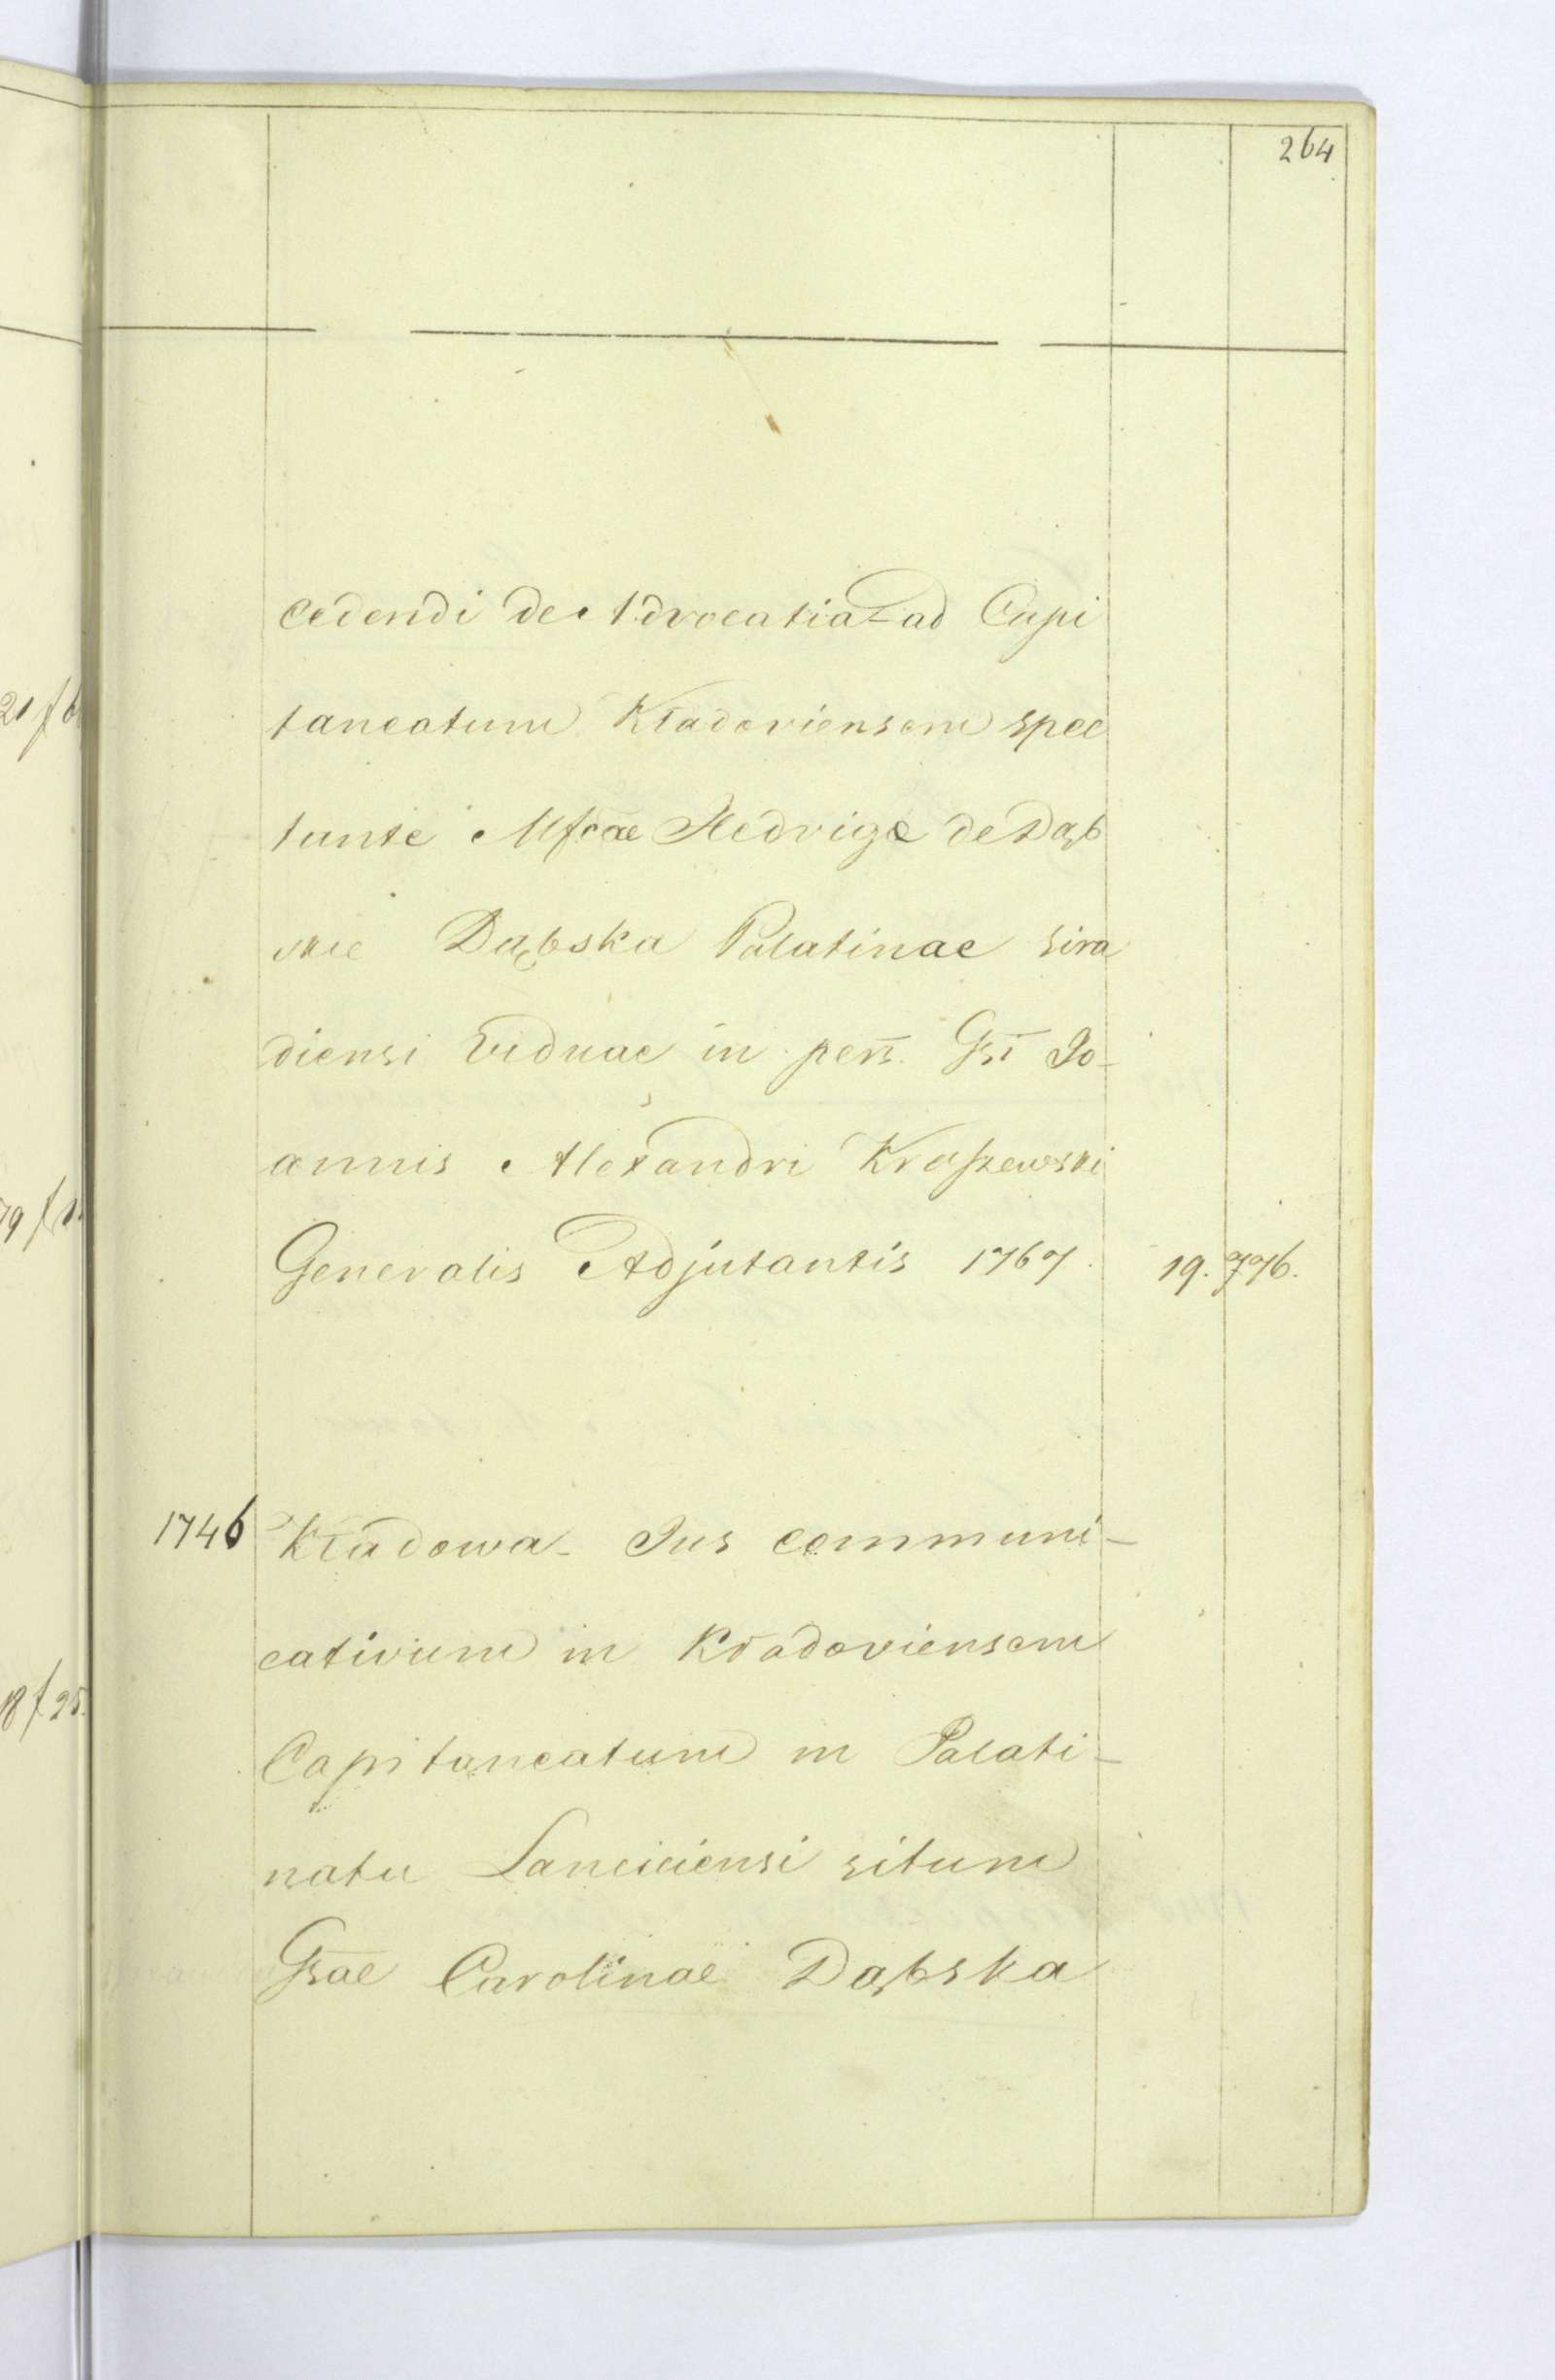 264
cedendi de Advocatia ad Capi
taneatum Kładoviensem spec
tante Mfcae Hedvigae de Dąb
skie Dąbska Palatinae Sira
diensi Viduae in pers. Gsi Jo-
annis Alexandri Kraszewski
Generalis Adjutantis 1767. 19. 776.
1746 Kładowa - Jus communi-
cativum in Kładoviensem
Capitaneatum in Palati-
natu Lanciciensi situm
Gsae Carolinae Dąbska